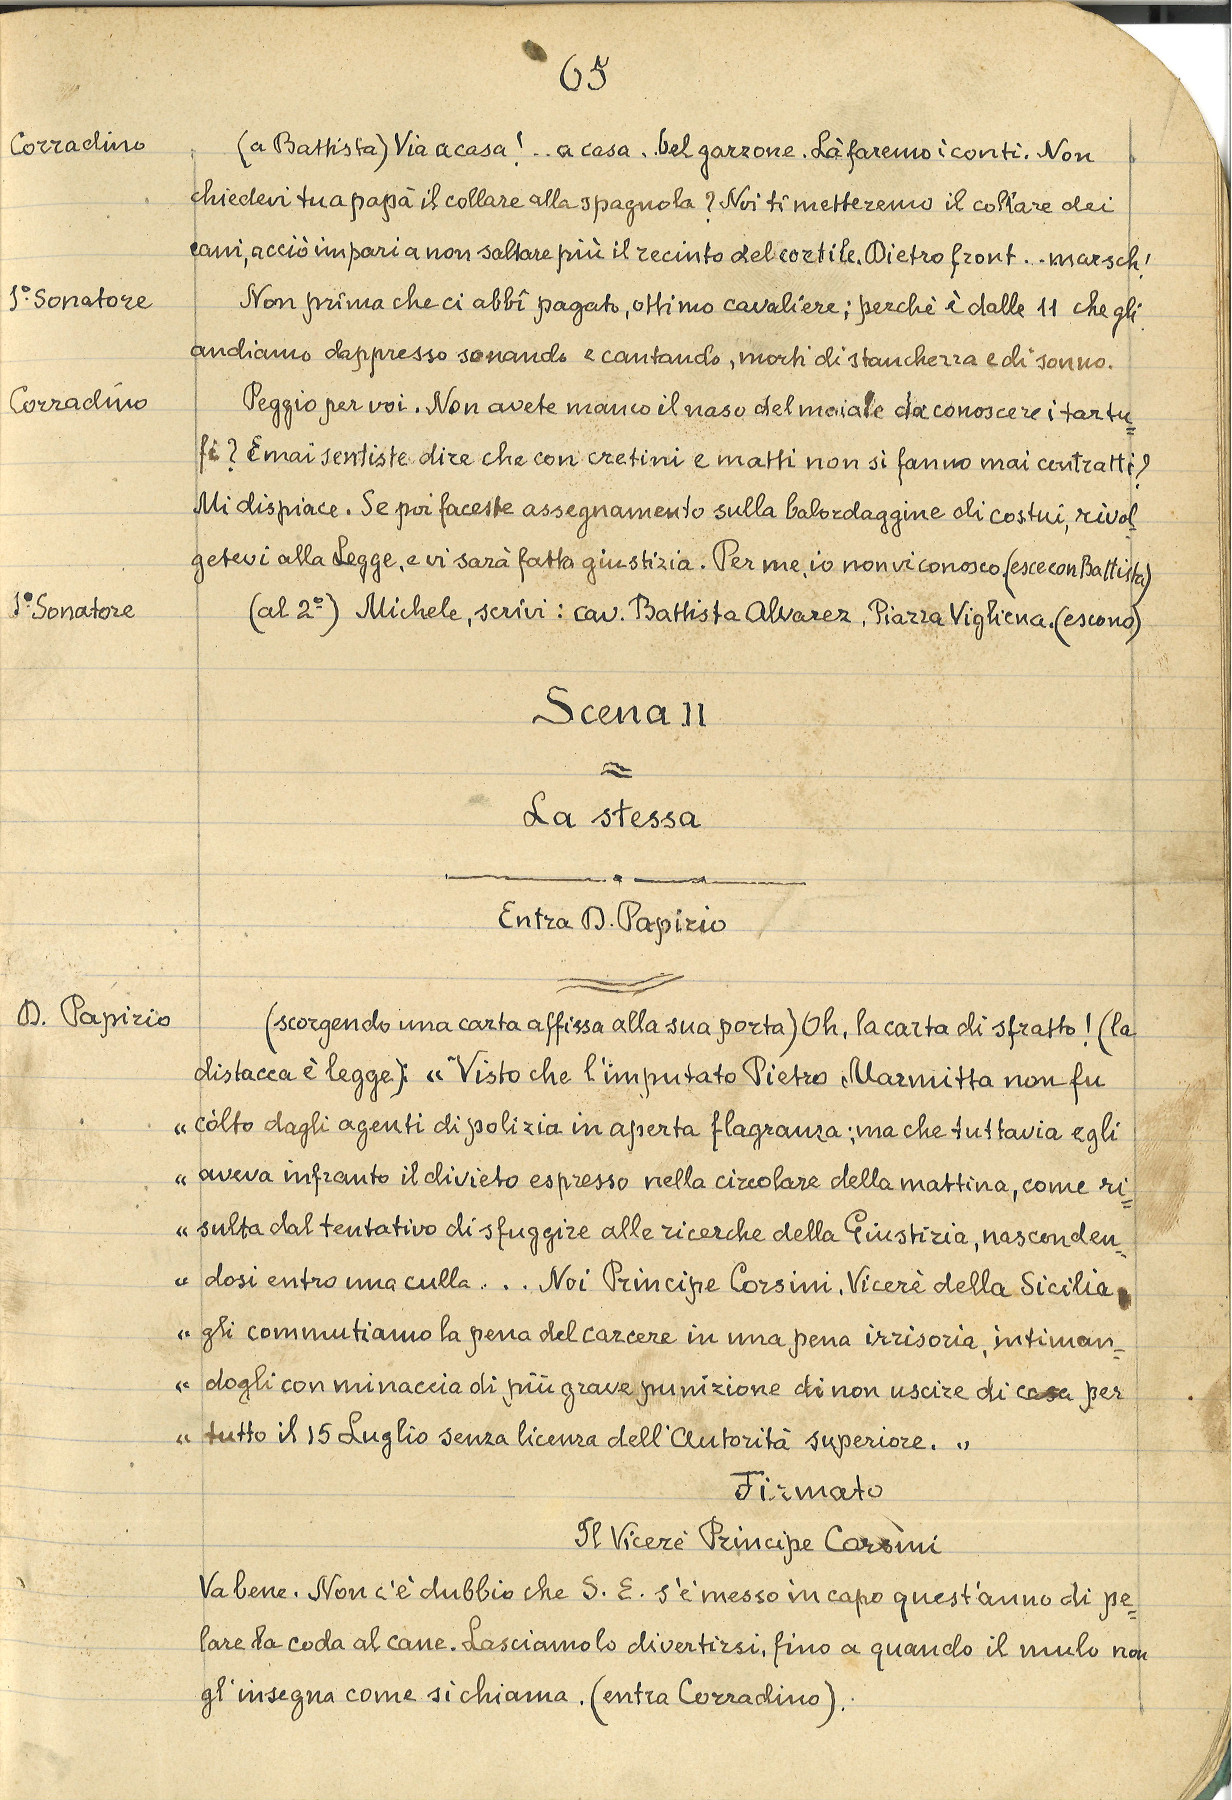 65
Corradino (a Battista) Via a casa! .. a casa .. bel garzone. Là faremo i conti. Non
chiedevi tu a papà il collare alla spagnola? Noi ti metteremo il collare dei
cani, acciò impari a non saltare più il recinto del cortile. Dietro front .. marsch!
1º Sonatore Non prima che ci abbî pagato, ottimo cavaliere; perchè è dalle 11 che gli
andiamo dappresso sonando e cantando, morti di stanchezza e di sonno.
Corradino Peggio per voi. Non avete manco il naso del maiale da conoscere i tartu=
fi? E mai sentiste dire che con cretini e matti non si fanno mai contratti?
Mi dispiace. Se poi faceste assegnamento sulla balordaggine di costui, rivol=
getevi alla Legge, e vi sarà fatta giustizia. Per me, io non vi conosco (esce con Battista)
1º Sonatore (al 2º) Michele, scrivi: cav. Battista Alvarez, Piazza Vigliena. (escono)
Scena II
La stessa
Entra D. Papirio
D. Papirio (scorgendo una carta affissa alla sua porta) Oh, la carta di sfratto! (la
distacca è legge): « Visto che l'imputato Pietro Marmitta non fu
« còlto dagli agenti di polizia in aperta flagranza; ma che tuttavia egli
« aveva infranto il divieto espresso nella circolare della mattina, come ri=
« sulta dal tentativo di sfuggire alle ricerche della Giustizia, nasconden=
« dosi entro una culla . . . Noi Principe Corsini, Vicerè della Sicilia
« gli commutiamo la pena del carcere in una pena irrisoria, intiman=
« dogli con minaccia di più grave punizione di non uscire di casa per
« tutto il 15 Luglio senza licenza dell'Autorità superiore. »
Firmato
Il Vicerè Principe Corsini
Va bene. Non c'è dubbio che S. E. s'è messo in capo quest'anno di pe=
lare la coda al cane. Lasciamolo divertirsi, fino a quando il mulo non
gl'insegna come si chiama. (entra Corradino).